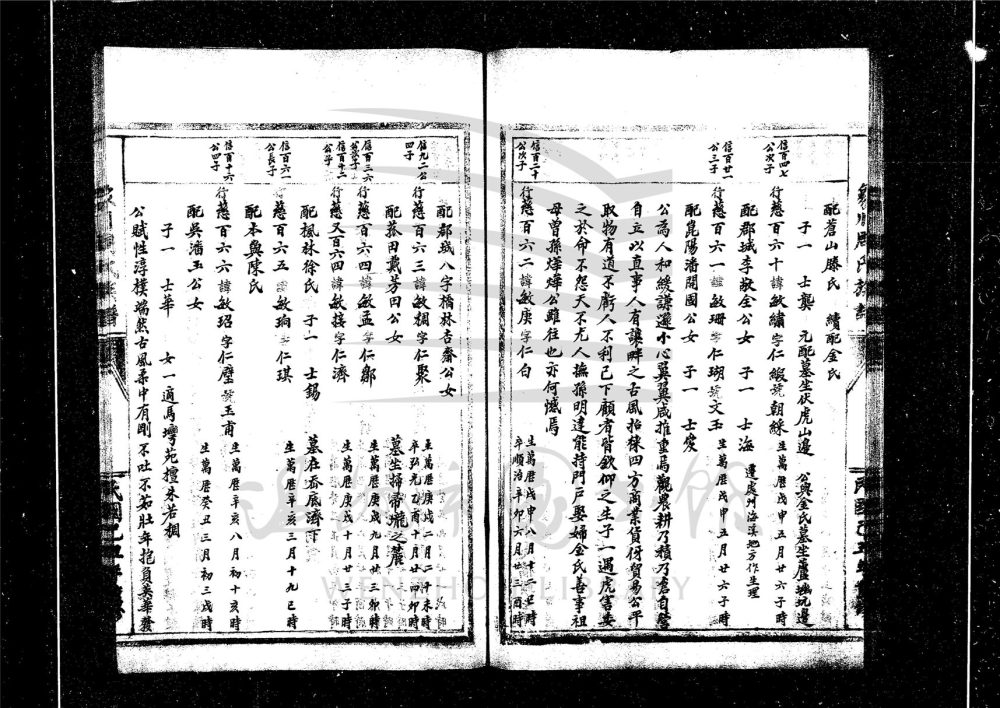 配蒼山滕氏　續配金氏
子一　士龔　元配墓坐伏虎山邊　公與金氏墓坐蘆塘坑邊
信百四七公次子
行慈百六十諱敏繡字仁緞號朝綵　生萬曆戊申五月廿六子時
遷處州海溪地方作生理
配郡城李敬全公女　子一　士海
信百廿一公三子
行慈百六一諱敏珊字仁瑚號文玉　生萬曆戊申五月廿六子時
配崑陽潘開國公女　子一　士俊
公爲人和緩謙遜小心翼翼咸推重焉觀農耕乃積乃倉自營
自立以直事人有讓畔之古風招徠四方商業貨伢貿易公平
取物有道不虧人不利己下顧者皆欽仰之生子一遇虎害安
之於命不怨天不尤人撫孫明達能持門戶娶婦金氏善事祖
母曾孫燁燁公雖往也亦何憾焉
信百二十公次子
行慈百六二諱敏庚字仁白　生萬曆戊申八月十二丑時
卒順治辛卯六月廿三酉時
配郡城八字橋林杏齋公女
信九二公四子
行慈百六三諱敏棡字仁聚　生萬曆庚戌二月二十未時
卒弘光乙酉十月廿四卯時
配菰田戴芳田公女　墓坐掃帚壠之麓
信百三六
行慈百六四諱敏孟字仁鄒　生萬曆庚戌九月廿三卯時
信百十二公子
行慈又百六四諱敏接字仁濟　生萬曆庚戌十月廿二子時
配楓林徐氏　子一　士錫　墓在岙底濟下
信百六一公長子
行慈百六五諱敏珦字仁琪　生萬曆辛亥三月十九巳時
配本與陳氏
信百十六公四子
行慈百六六諱敏玿字仁璧號玉甫　生萬曆辛亥八月初十亥時
配吳潘玉公女　生萬曆癸丑三月初三戌時
子一　士華　女一適馬灣苑擅朱若棡
公賦性淳樸端然古風柔中有剛不吐不茹壯年抱負英華發
WENZHOU LIBRARY